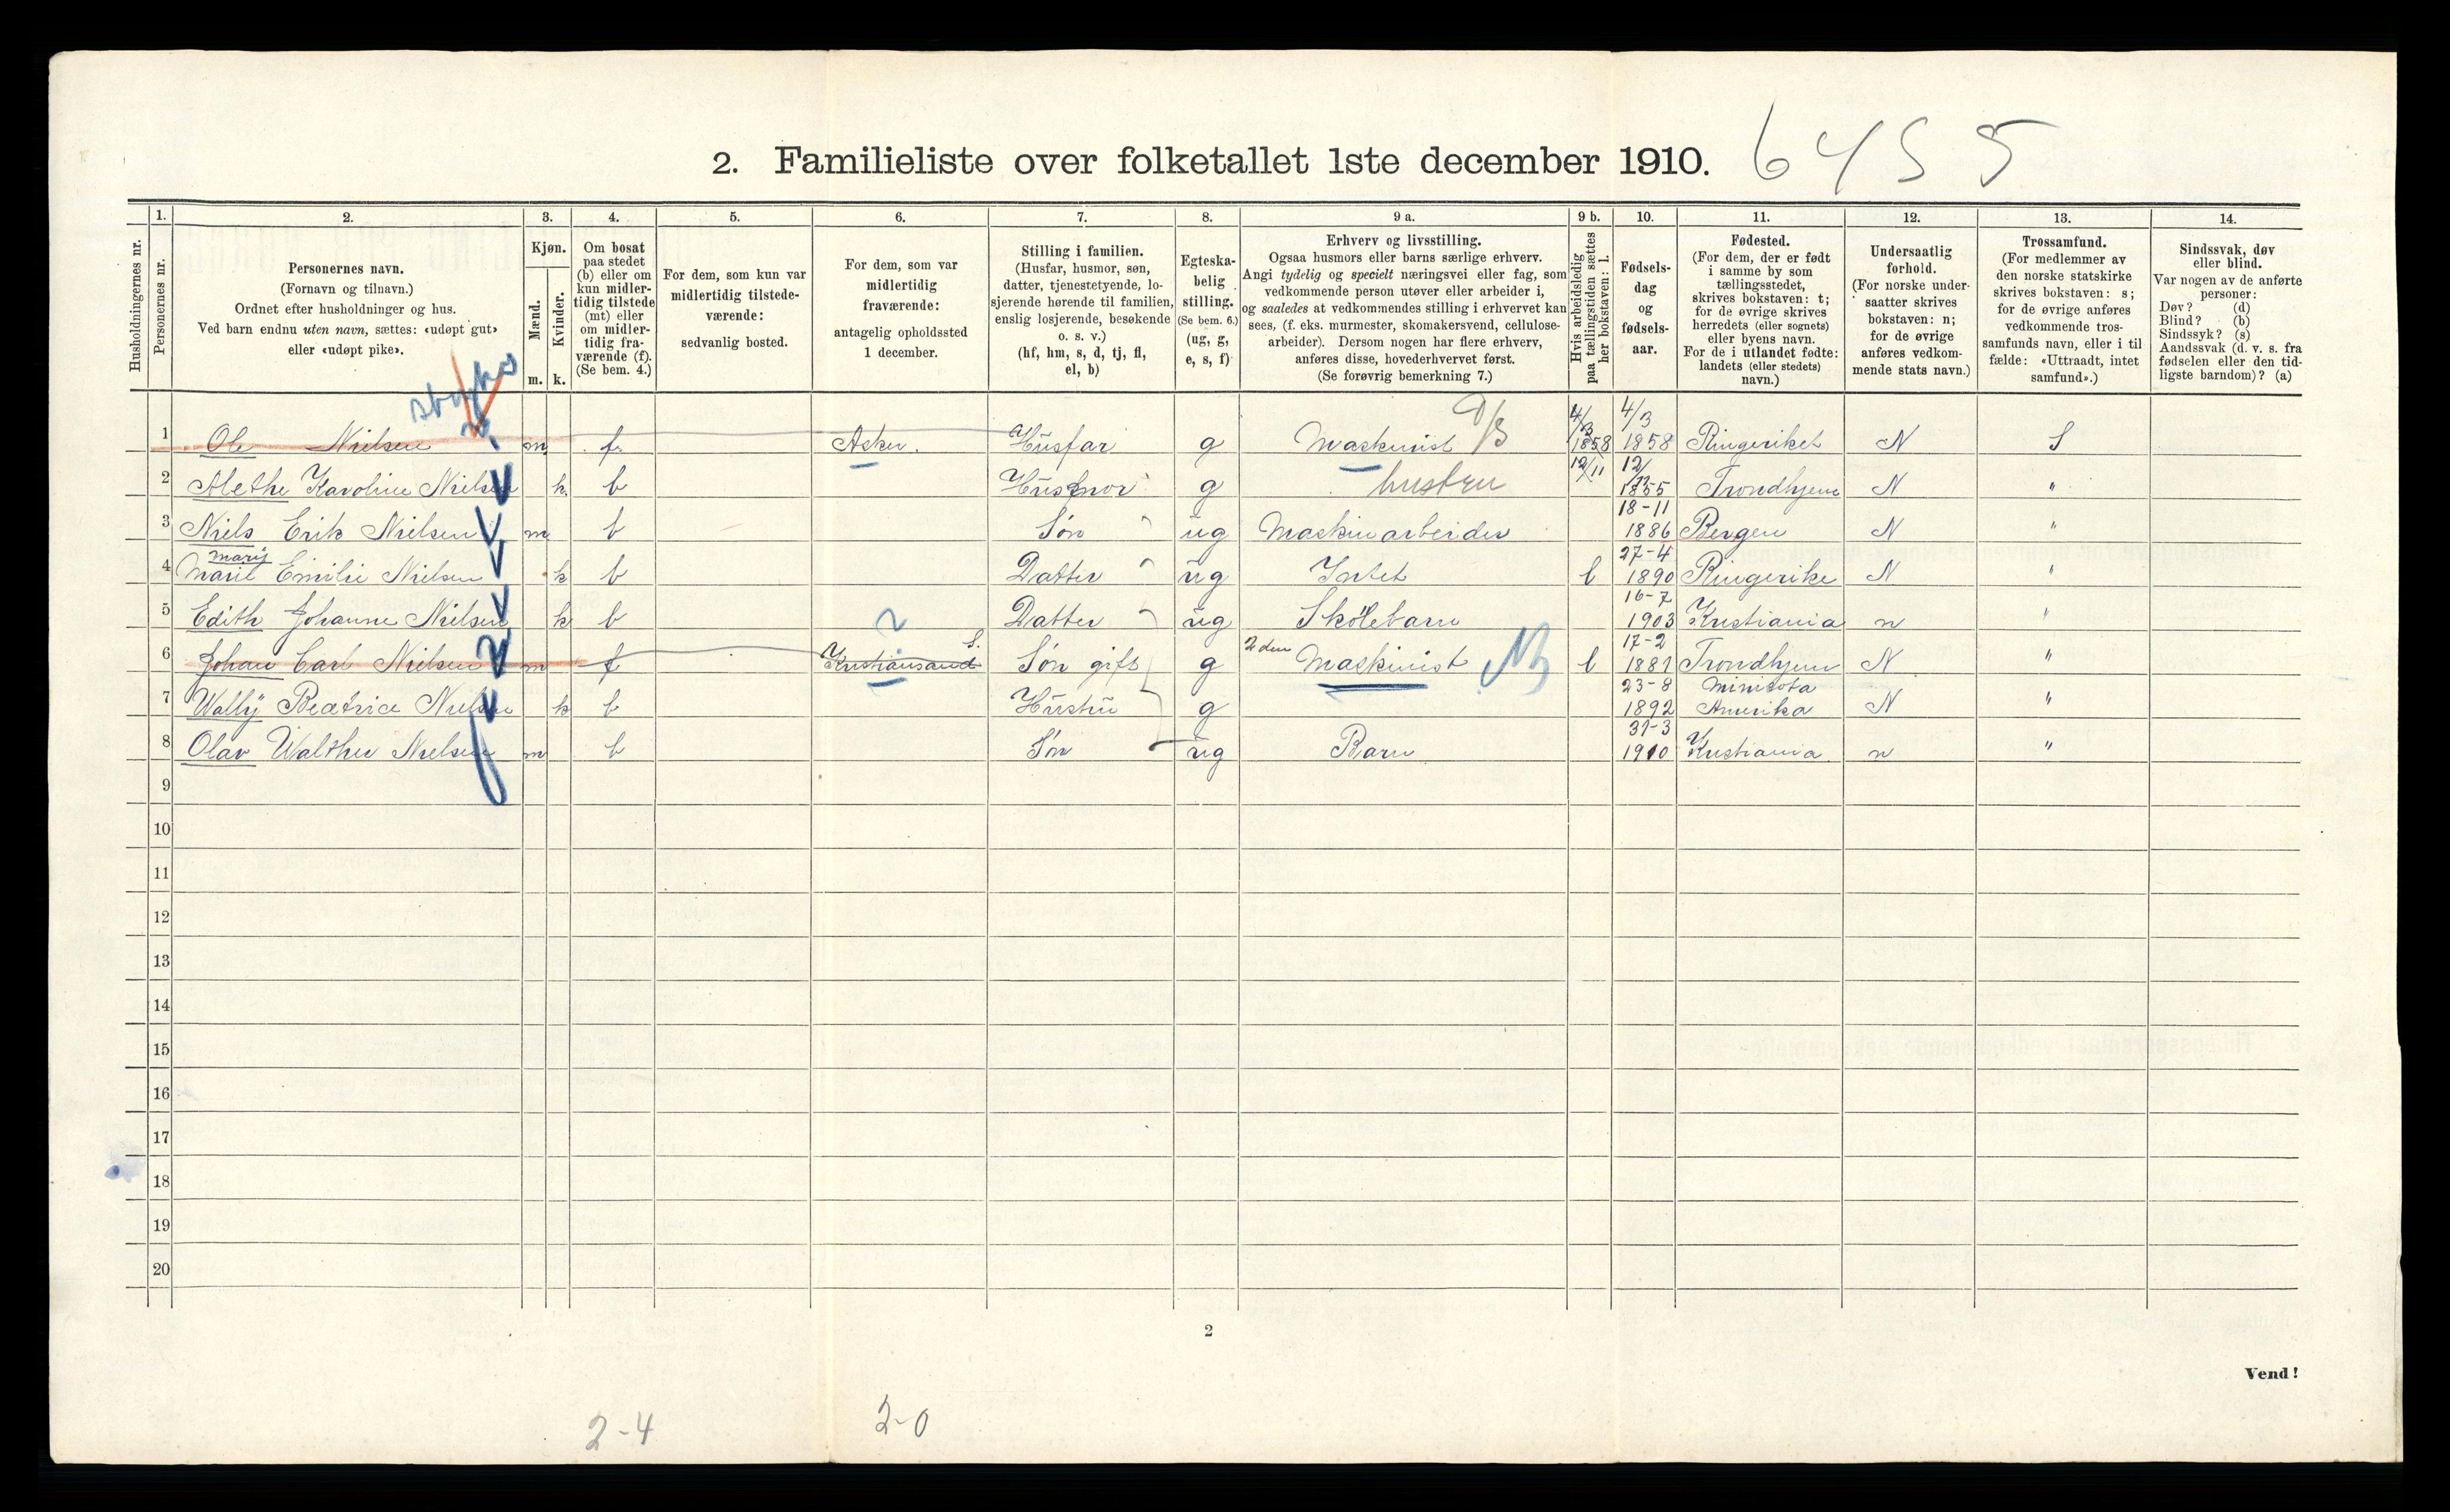 2. Familieliste over folketallet 1ste december 1910. 6455
1. 2. 3. 4. 5. 6. 7. 8. 9 a. 9 b. 10. 11. 12. 13. 14.
Husholdningernes nr.
Personernes nr.
Personernes navn.
(Fornavn og tilnavn.)
Ordnet efter husholdninger og hus.
Ved barn endnu uten navn, sættes: «udøpt gut»
eller «udøpt pike».
Kjøn.
Mænd.
Kvinder.
m. k.
Om bosat
paa stedet
(b) eller om
kun midler-
tidig tilstede
(mt) eller
om midler-
tidig fra-
værende (f).
(Se bem. 4.)
For dem, som kun var
midlertidig tilstede-
værende:
sedvanlig bosted.
For dem, som var
midlertidig
fraværende:
antagelig opholdssted
1 december.
Stilling i familien.
(Husfar, husmor, søn,
datter, tjenestetyende, lo-
sjerende hørende til familien,
enslig losjerende, besøkende
o. s. v.)
(hf, hm, s, d, tj, fl,
el, b)
Egteska-
belig
stilling.
(Se bem. 6.)
(ug, g,
e, s, f)
Erhverv og livsstilling.
Ogsaa husmors eller barns særlige erhverv.
Angi tydelig og specielt næringsvei eller fag, som
vedkommende person utøver eller arbeider i,
og saaledes at vedkommendes stilling i erhvervet kan
sees, (f. eks. murmester, skomakersvend, cellulose-
arbeider). Dersom nogen har flere erhverv,
anføres disse, hovederhvervet først.
(Se forøvrig bemerkning 7.)
Hvis arbeidsledig
paa tællingstiden sættes
her bokstaven: l.
Fødsels-
dag
og
fødsels-
aar.
Fødested.
(For dem, der er født
i samme by som
tællingsstedet,
skrives bokstaven: t;
for de øvrige skrives
herredets (eller sognets)
eller byens navn.
For de i utlandet fødte:
landets (eller stedets)
navn.)
Undersaatlig
forhold.
(For norske under-
saatter skrives
bokstaven: n;
for de øvrige
anføres vedkom-
mende stats navn.)
Trossamfund.
(For medlemmer av
den norske statskirke
skrives bokstaven: s;
for de øvrige anføres
vedkommende tros-
samfunds navn, eller i til
fælde: «Uttraadt, intet
samfund».)
Sindssvak, døv
eller blind.
Var nogen av de anførte
personer:
Døv? (d)
Blind? (b)
Sindssyk? (s)
Aandssvak (d. v. s. fra
fødselen eller den tid-
ligste barndom)? (a)
strykes
4/3 4/3
1 Ole Nielsen m f. Asker. Husfar g Maskinist 1858 1858 Ringeriket N S
12/11 12/11
2 Alethe Karoline Nielsen k. b Husmor g hustru 1855 Trondhjem N "
18-11
3 Niels Erik Nielsen m b Søn ug Maskinarbeider 1886 Bergen N "
Marij 27-4
4 Marie Emilie Nielsen k b Datter ug Intet l 1890 Ringerike N "
16-7
5 Edith Johanne Nielsen k b Datter ug Skolebarn 1903 Kristiania n "
17-2
6 Johan Carl Nielsen m f Kristiansand S. Søn gift g 2den Maskinist l 1881 Trondhjem N "
23-8 Minisota
7 Wally Beatrice Nielsen k b Hustru g 1892 Amerika N "
31-3
8 Olav Walther Nielsen m b Søn ug Barn 1910 Kristiania n "
9
10
11
12
13
14
15
16
17
18
19
20
2
Vend!
2-4 2-0